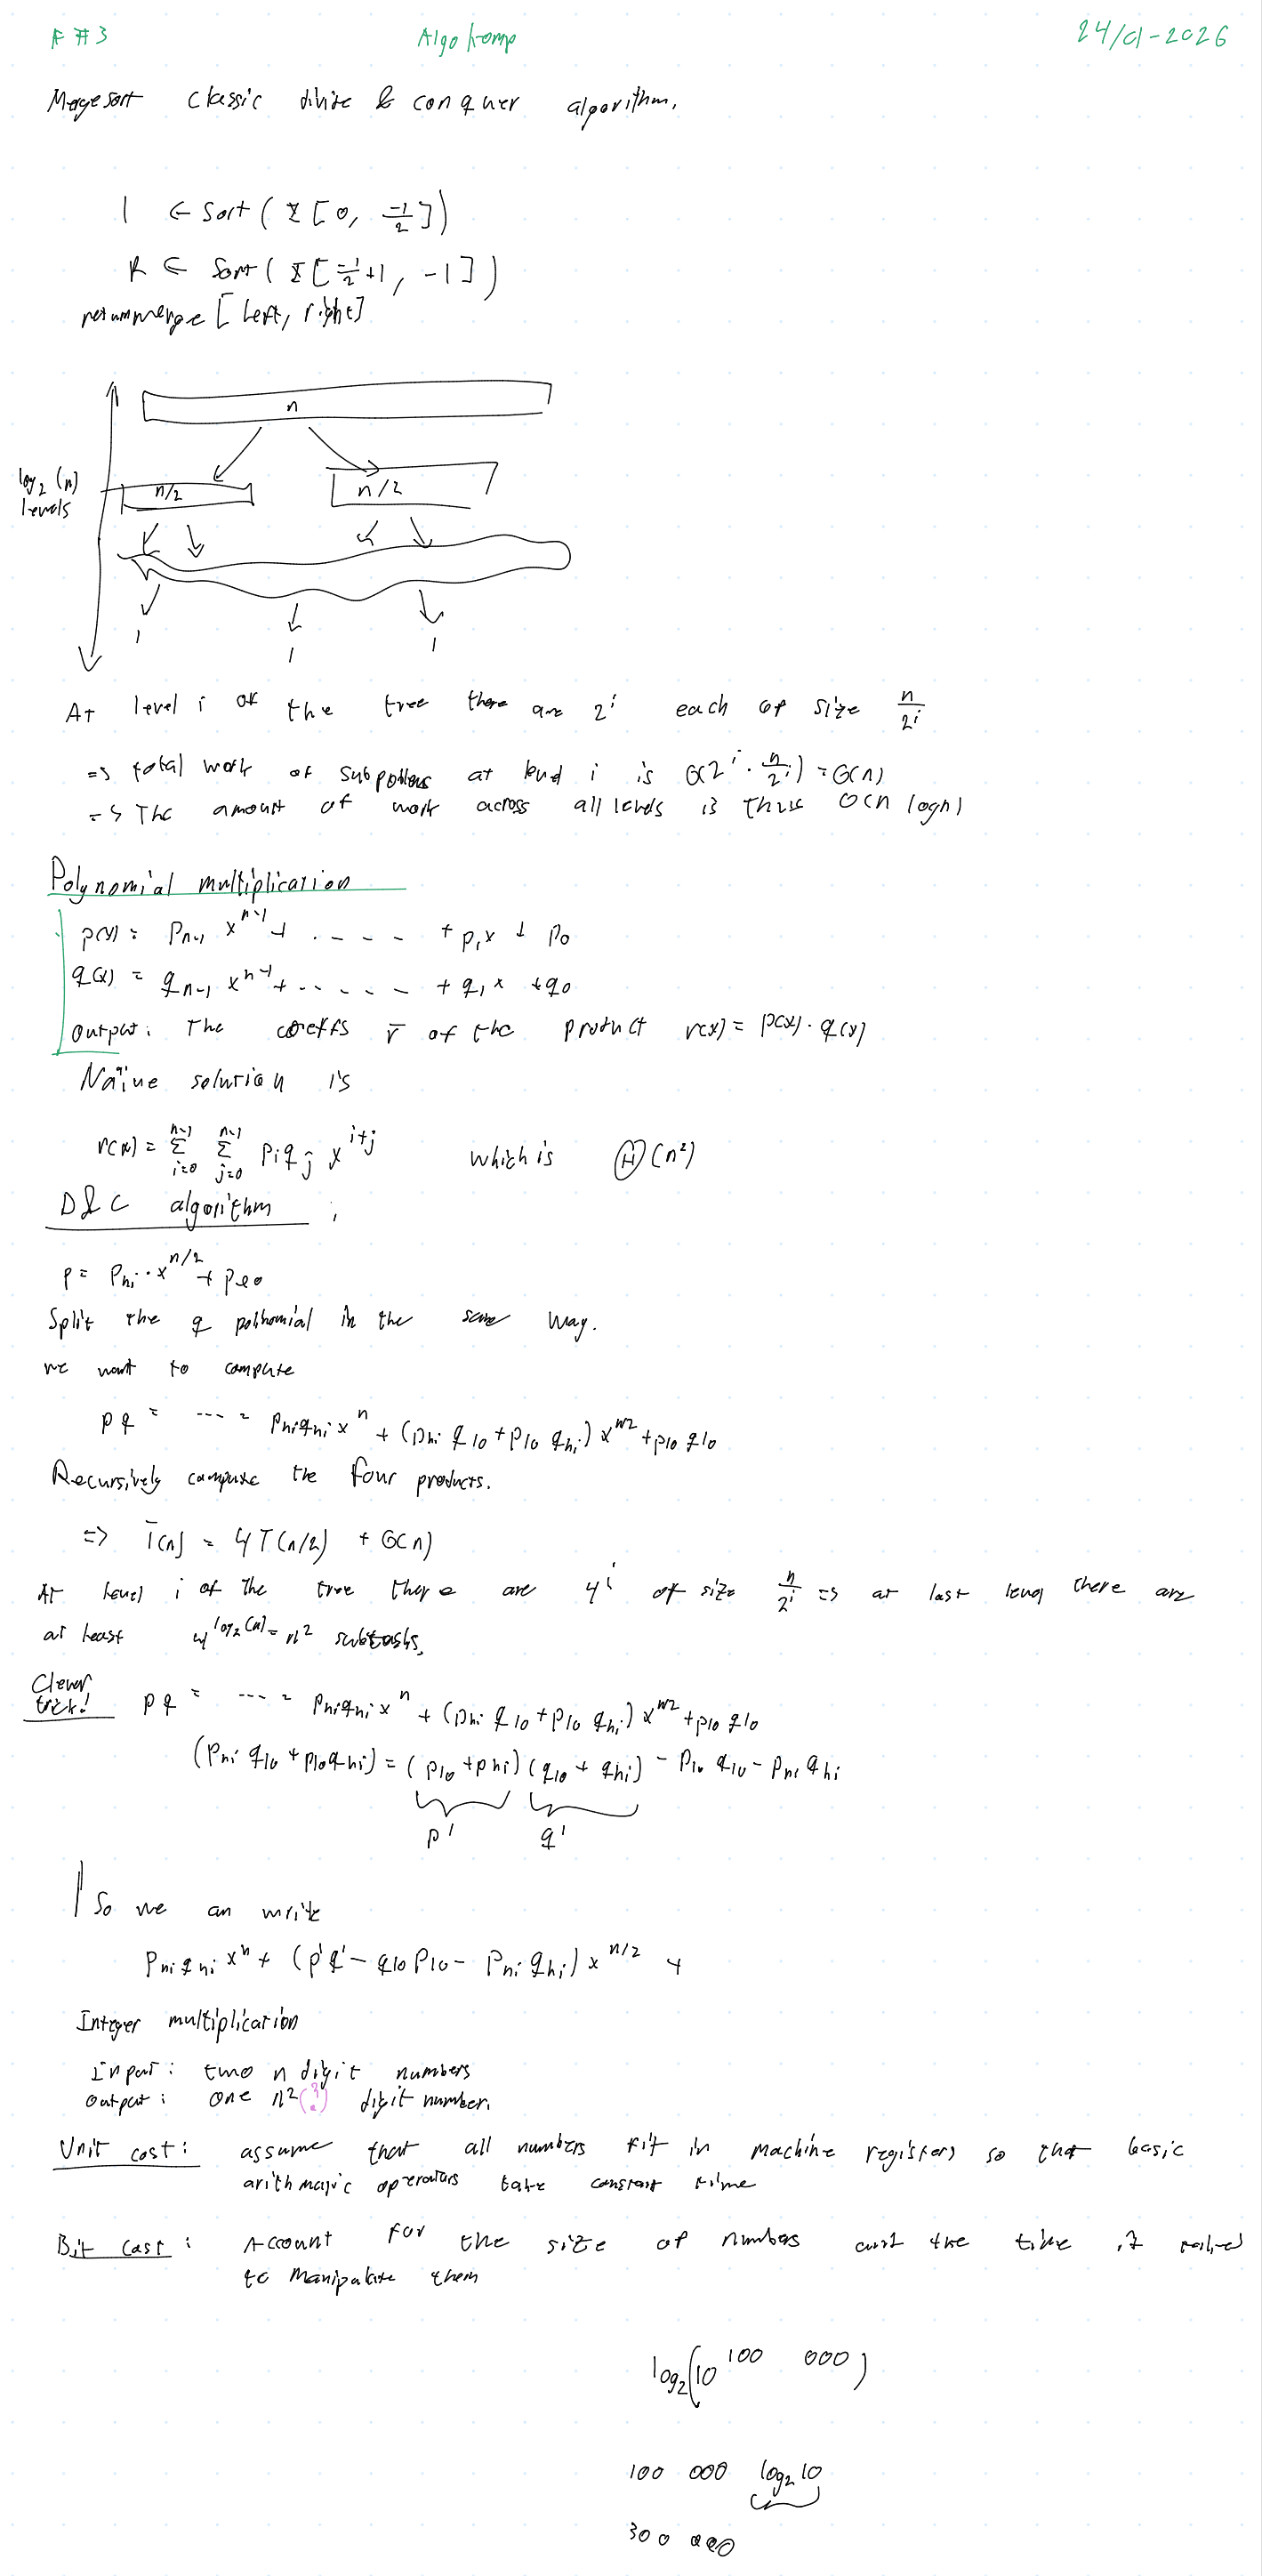 F #3 Algokomp 24/01-2026
Mergesort classic divide & conquer algorithm.
l ← Sort( X [0, -1/2])
R ← Sort( X [-1/2+1, -1])
return merge [left, right]
n
log₂(n)
levels
n/2 n/2
1 1 1
At level i of the tree there are 2^i each of size n/2^i
=> total work of subpoblems at level i is O(2^i · n/2^i) = O(n)
=> The amount of work across all levels is thus O(n logn)
Polynomial multiplication
p(x) = p_{n-1} x^{n-1} + . - - - + p₁x + p₀
q(x) = q_{n-1} x^{n-1} + . . . . . - + q₁x + q₀
Output: The coeffs r̄ of the product r(x) = p(x) · q(x)
Naïve solution is
r(x) = Σ_{i=0}^{n-1} Σ_{j=0}^{n-1} p_i q_j x^{i+j} which is Θ(n²)
D&C algorithm ;
p = p_hi · x^{n/2} + p_lo
Split the q polnomial in the same way.
we want to compute
pq = --- = p_hi q_hi x^n + (p_hi q_lo + p_lo q_hi) x^{n/2} + p_lo q_lo
Recursively compute the four products.
=> T(n) = 4T(n/2) + O(n)
At level i of the tree there are 4^i of size n/2^i => at last level there are
at least 4^{log₂(n)} = n² subtasks.
Clever
trick! pq = --- = p_hi q_hi x^n + (p_hi q_lo + p_lo q_hi) x^{n/2} + p_lo q_lo
(p_hi q_lo + p_lo q_hi) = (p_lo + p_hi)(q_lo + q_hi) - p_lo q_lo - p_hi q_hi
p' q'
So we an write
p_hi q_hi x^n + (p'q' - q_lo p_lo - p_hi q_hi) x^{n/2} +
Integer multiplication
Input: two n digit numbers
Output: one n²(?) digit number.
Unit cost: assume that all numbers fit in machine registers so that basic
operators take constant time
Bit cost: Account for the size of numbers and the time it
to manipulate them
log₂(10^{100 000})
100 000 log₂10
300 000